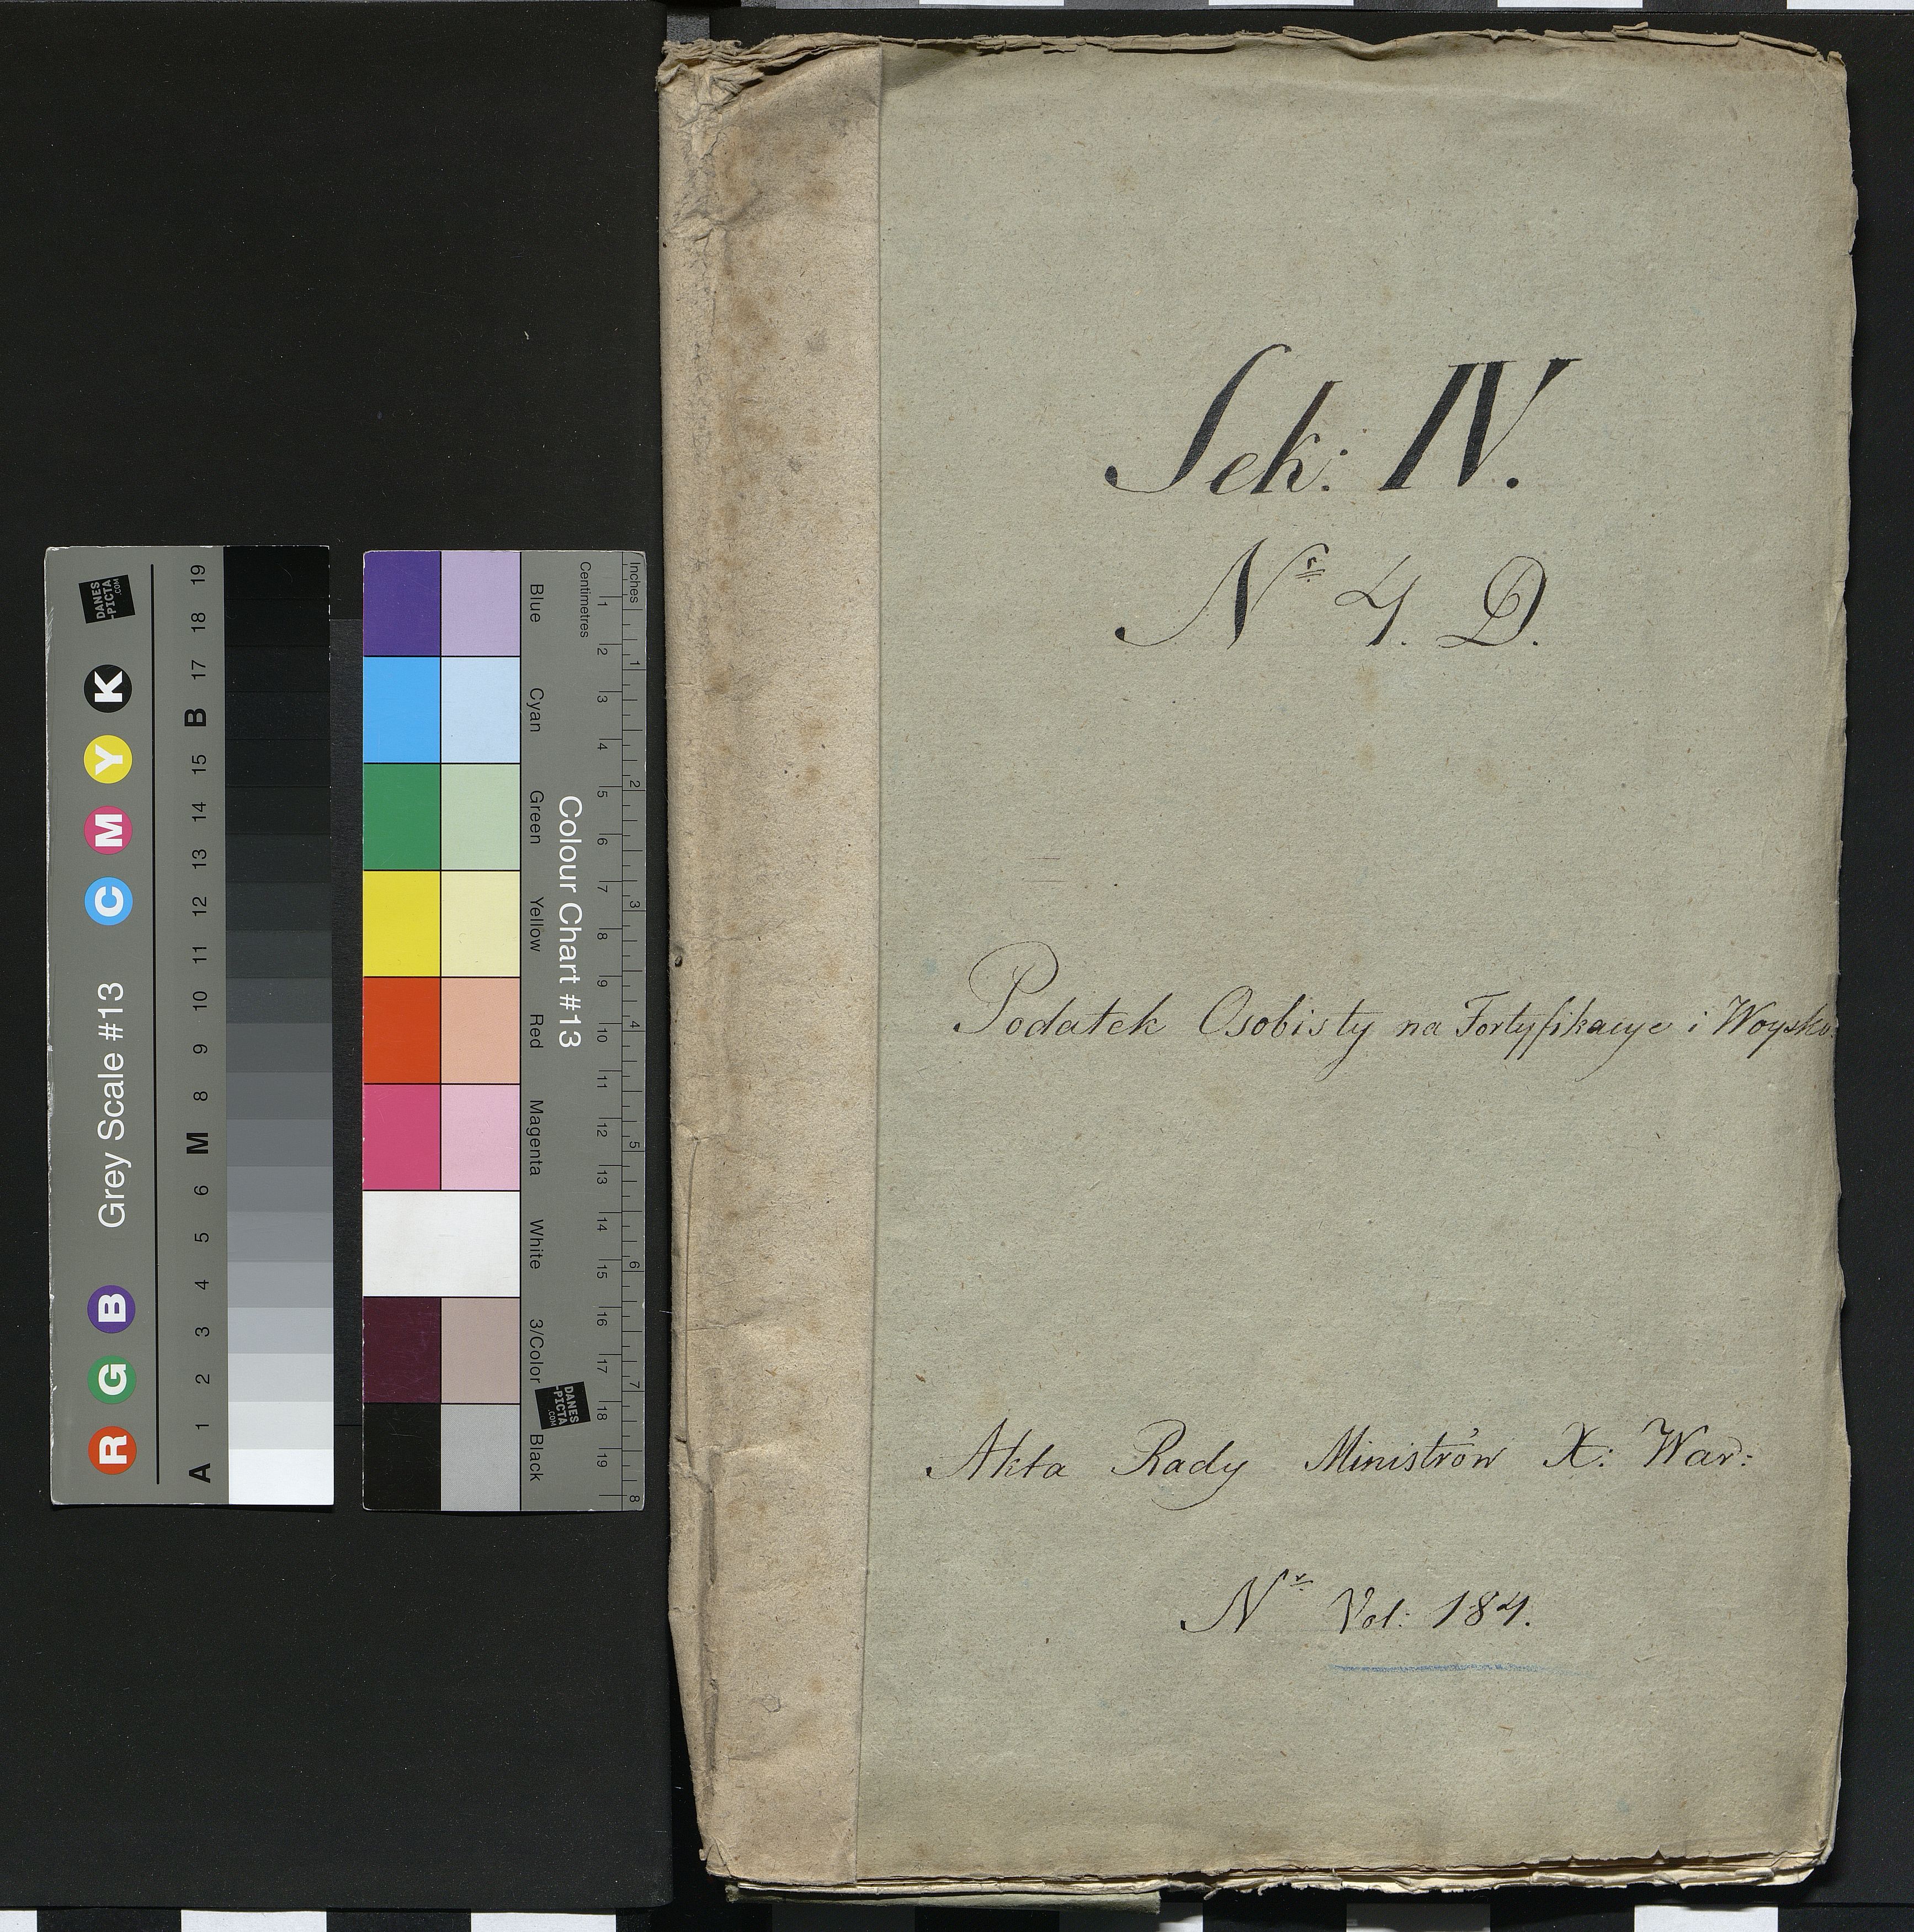 Sek: IV.
Nr 4. D.
Podatek Osobisty na Fortyfikacye i Woysko.
Akta Rady Ministrów X: War:
Nr Vol: 184.
Grey Scale #13
R G B C M Y K
A 1 2 3 4 5 6 M 8 9 10 11 12 13 14 15 B 17 18 19
DANES
-PICTA
.COM
Colour Chart #13
Blue Cyan Green Yellow Red Magenta White 3/Color Black
Centimetres 1 2 3 4 5 6 7 8 9 10 11 12 13 14 15 16 17 18 19
Inches 1 2 3 4 5 6 7 8
DANES
-PICTA
.COM